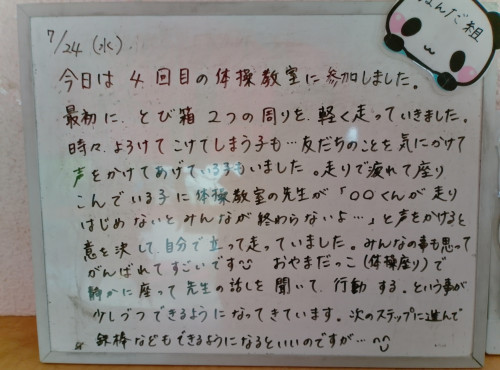 ぱんだ組
7/24 (水)
今日は 4 回目の体操教室に参加しました。
最初に、とび箱 2つの周りを、軽く走っていきました。
時々、よろけてこけてしまう子も…友だちのことを気にかけて
声をかけてあげている子もいました。走りで疲れて座り
こんでいる子に体操教室の先生が「〇〇くんが走り
はじめないとみんなが終わらないよ…」と声をかけると
意を決して自分で立って走っていました。みんなの事も思って
がんばれてすごいです おやまだっこ(体操座り)で
静かに座って先生の話しを聞いて、行動する。という事が
少しづつできるようになってきています。次のステップに進んで
鉄棒などもできるようになるといいのですが…^^